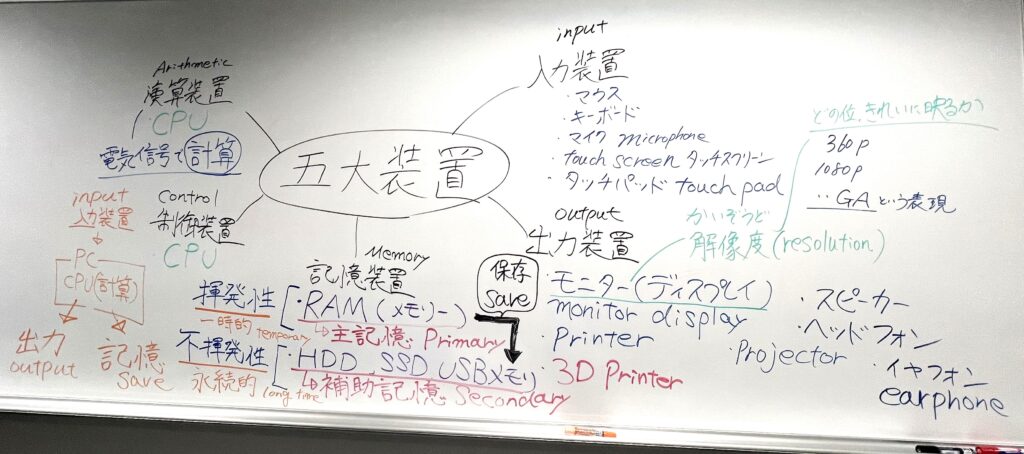 五大装置
Arithmetic
演算装置
CPU
電気信号で計算
control
制御装置
CPU
input
入力装置
PC
CPU(計算)
出力
output
記憶
save
Memory
記憶装置
揮発性
一時的 temporary
・RAM(メモリー)
↳主記憶 Primary
不揮発性
永続的 long time
・HDD、SSD、USBメモリ
↳補助記憶 Secondary
保存
save
input
入力装置
・マウス
・キーボード
・マイク microphone
・touch screen タッチスクリーン
・タッチパッド touch pad
output
出力装置
・モニター(ディスプレイ)
monitor display
・Printer
・3D Printer
・Projector
・スピーカー
・ヘッドフォン
・イヤフォン
earphone
かいぞうど
解像度(resolution)
どの位、きれいに映るか
360p
1080p
‥GAという表現